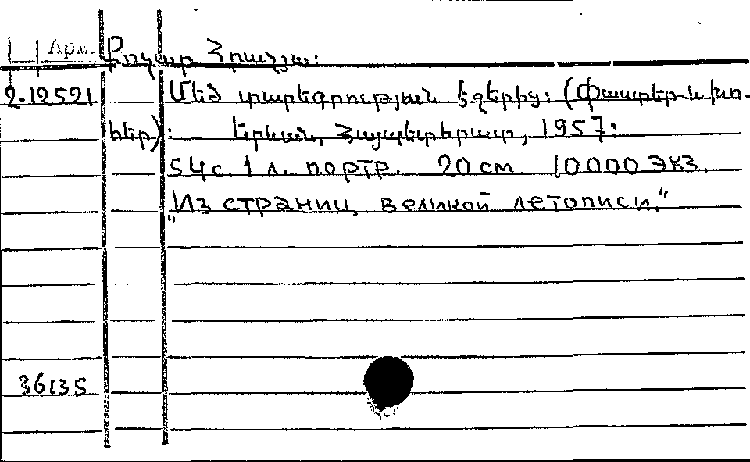 Арм. Քոչար Հրաչյա։
2-12521 Մեծ տարեգրության էջերից։ (Փաստեր և խո-
հեր)։ Երևան, Հայպետհրատ, 1957։
54 с. 1 л. портр. 20 см. 10000 экз.
„Из страниц великой летописи."
36135